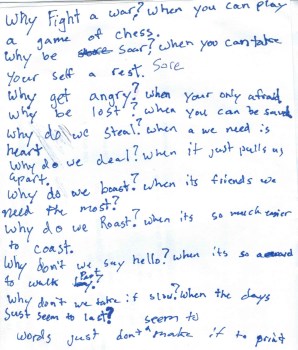 Why Fight a war? When you can play
a game of chess.
Why be soar? when you can take
your self a rest. Sore
Why get angry? when your only afraid
Why be lost? when you can be saved
Why do we steal? when a we need is
heart
Why do we deal? when it just pulls us
apart.
Why do we boast? when its friends we
need the most?
Why do we Roast? when its so much easier
to coast.
Why don't we say hello? when its so
to walk Past
Why don't we take it slow? When the days
Just seem to last? seem to
words just don't make it to print